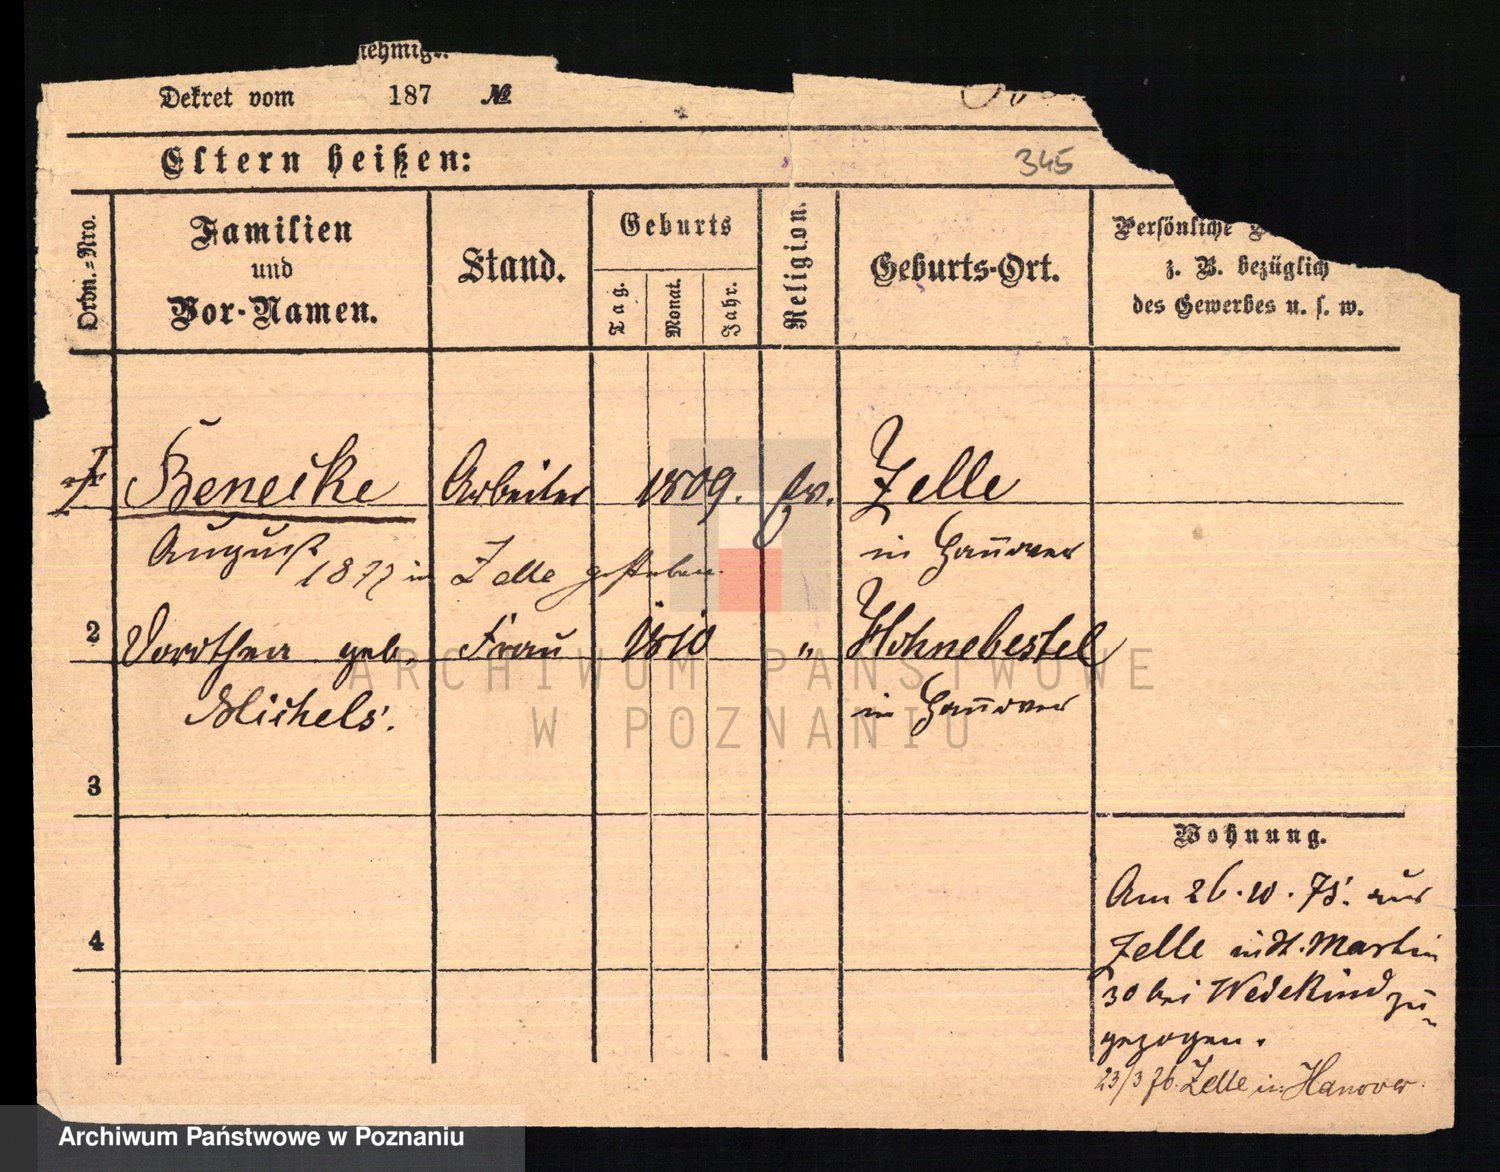 Dekret vom 187 №
Eltern heißen:
345
Ordn.-Nro.
Familien
und
Vor-Namen.
Stand.
Geburts
Tag.
Monat.
Jahr.
Religion.
Geburts-Ort.
Persönliche
z. B. bezüglich
des Gewerbes u. s. w.
Beneike Arbeiter 1809. Ev. Zelle
August in Hannover
1877 in Zelle gestorben.
2 Dorothea geb. Frau 1810 " Hohnebestel
Michels. in Hannover
3
Wohnung.
Am 26.10.75. aus
Zelle in St. Martin
30 bei Wedekind zu-
gezogen.
4
23/3 76. Zelle in Hanover.
ARCHIWUM PAŃSTWOWE
W POZNANIU
Archiwum Państwowe w Poznaniu